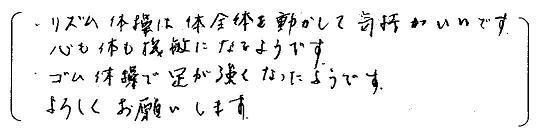 ・リズム体操は体全体を動かして気持がいいです
心も体も機敏になるようです
・ゴム体操で足が強くなったようです
よろしくお願いします